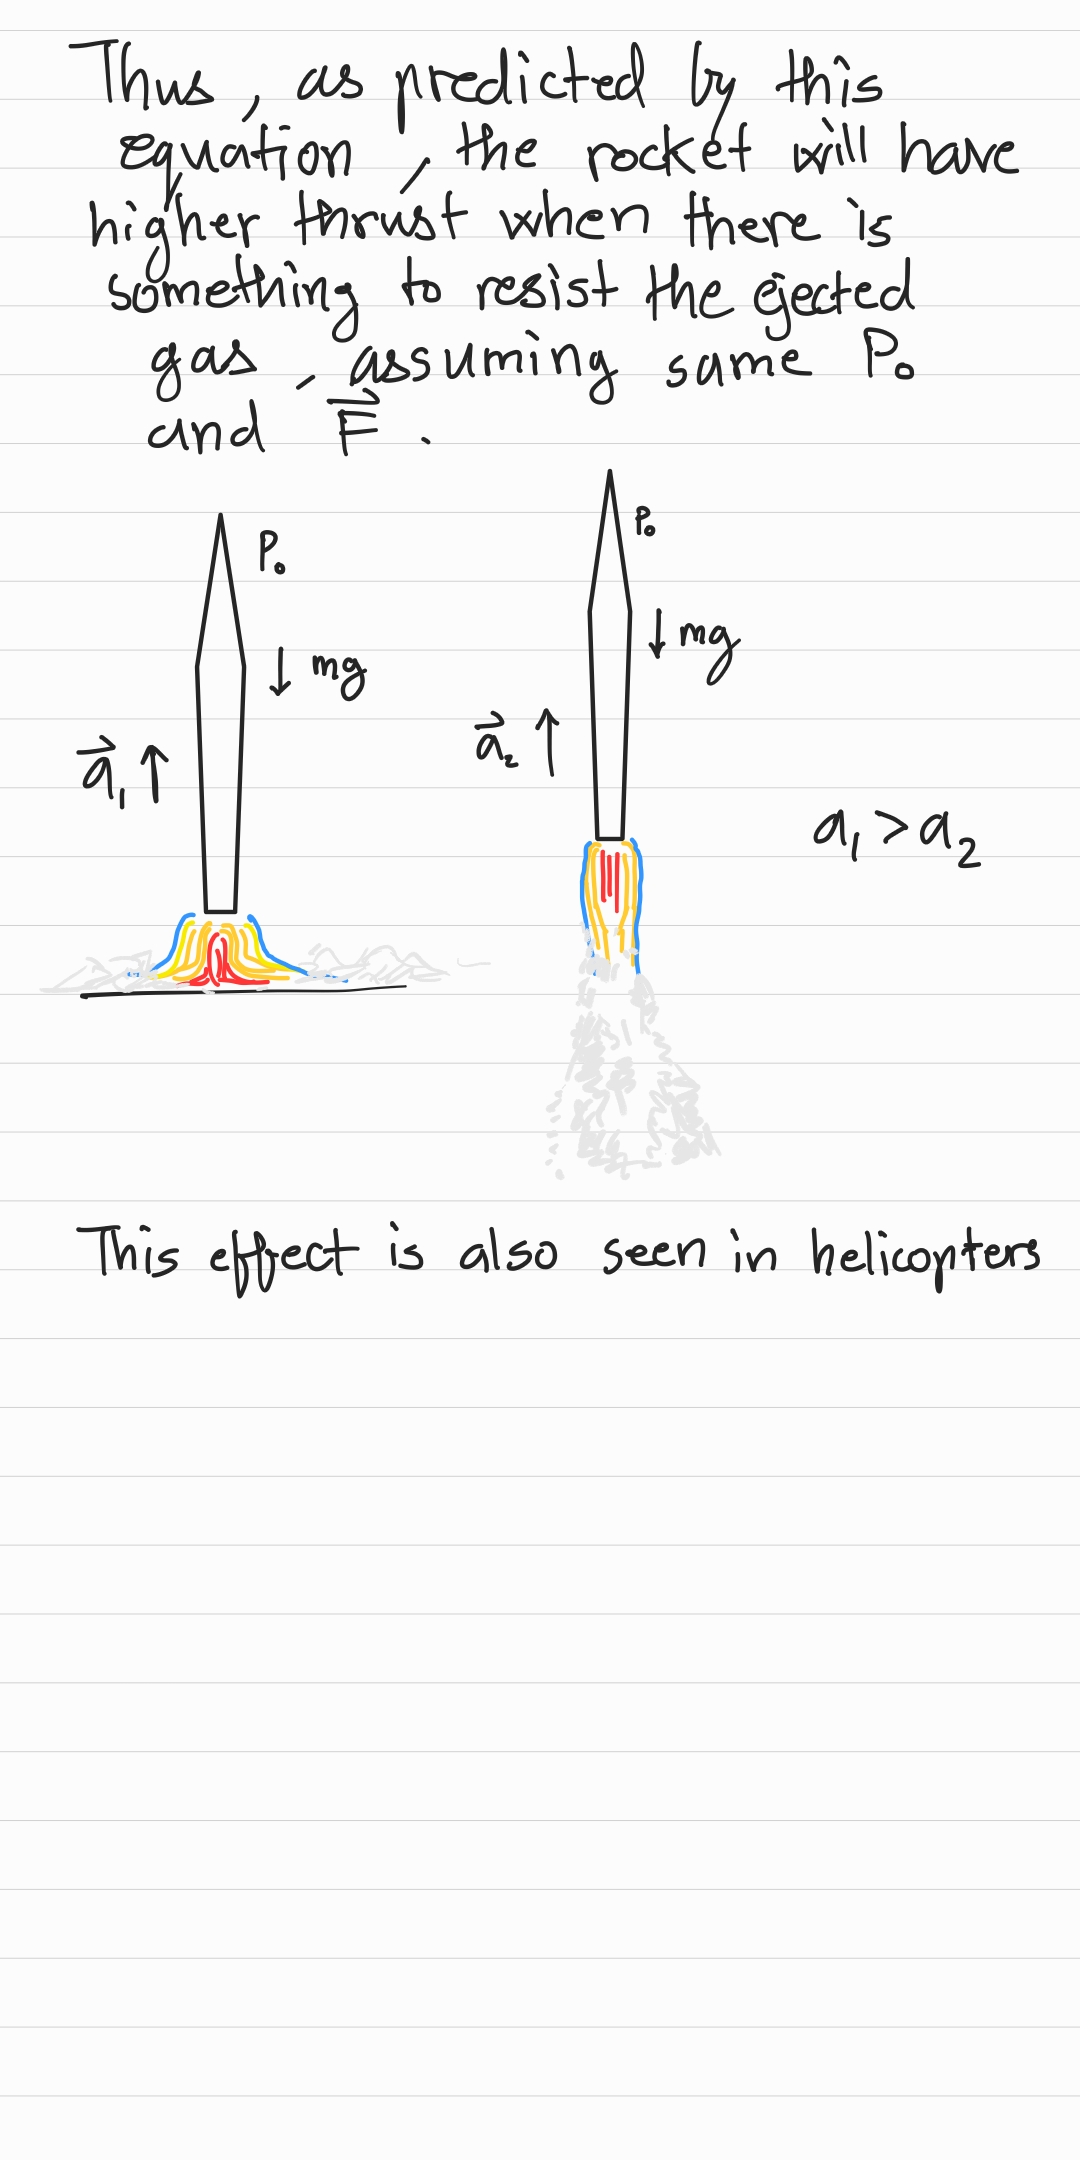 Thus, as predicted by this
equation, the rocket will have
higher thrust when there is
something to resist the ejected
gas, assuming same P₀
and F⃗.
P₀
P₀
↓ mg
↓ mg
a⃗₁ ↑
a⃗₂ ↑
a₁ > a₂
This effect is also seen in helicopters